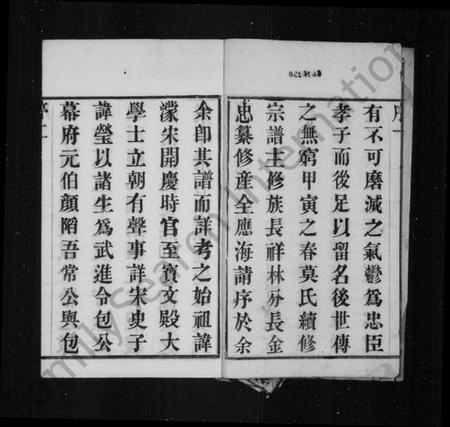 有不可磨滅之氣鬱爲忠臣
孝子而後足以留名後世傳
之無窮甲寅之春莫氏續修
宗譜主修族長祥林分長金
忠纂修産全應海請序於余
余卽其譜而詳考之始祖諱
濛宋開慶時官至寶文殿大
學士立朝有聲事詳宋史子
諱瑩以諸生爲武進令包公
幕府元伯顏陷吾常公與包
序二
FamilySearch International